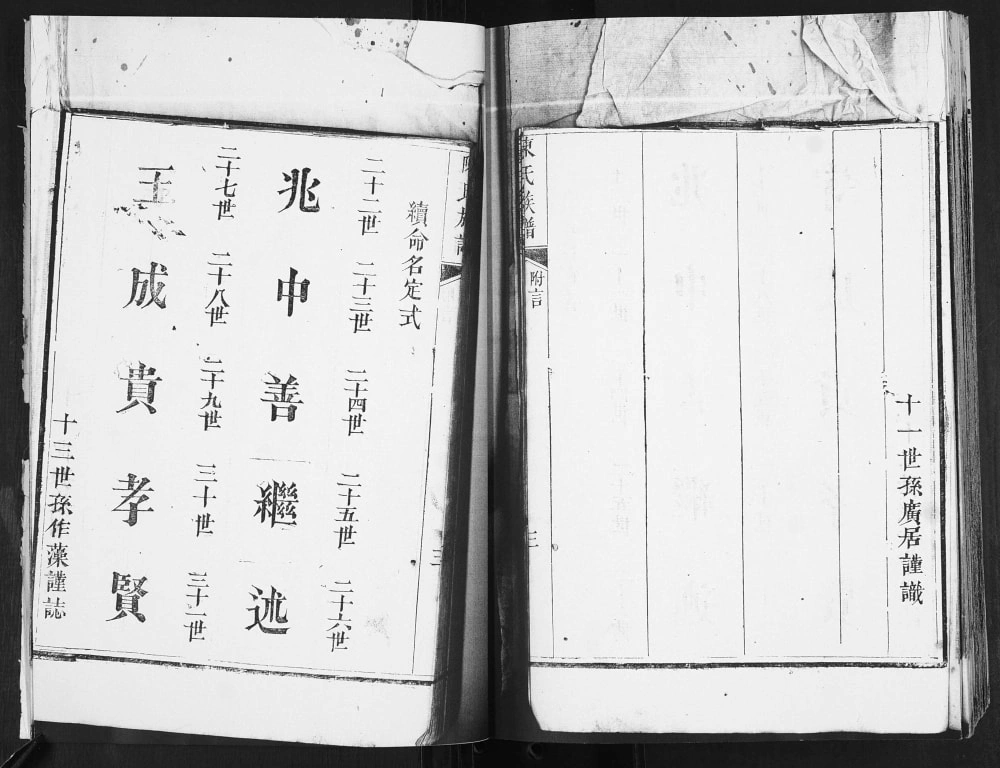 十一世孫廣居謹識
陳氏族譜
附言
三
續命名定式
二十二世 二十三世 二十四世 二十五世 二十六世
兆 中 善 繼 述
二十七世 二十八世 二十九世 三十世 三十一世
成 貴 孝 賢
十三世孫作藻謹誌